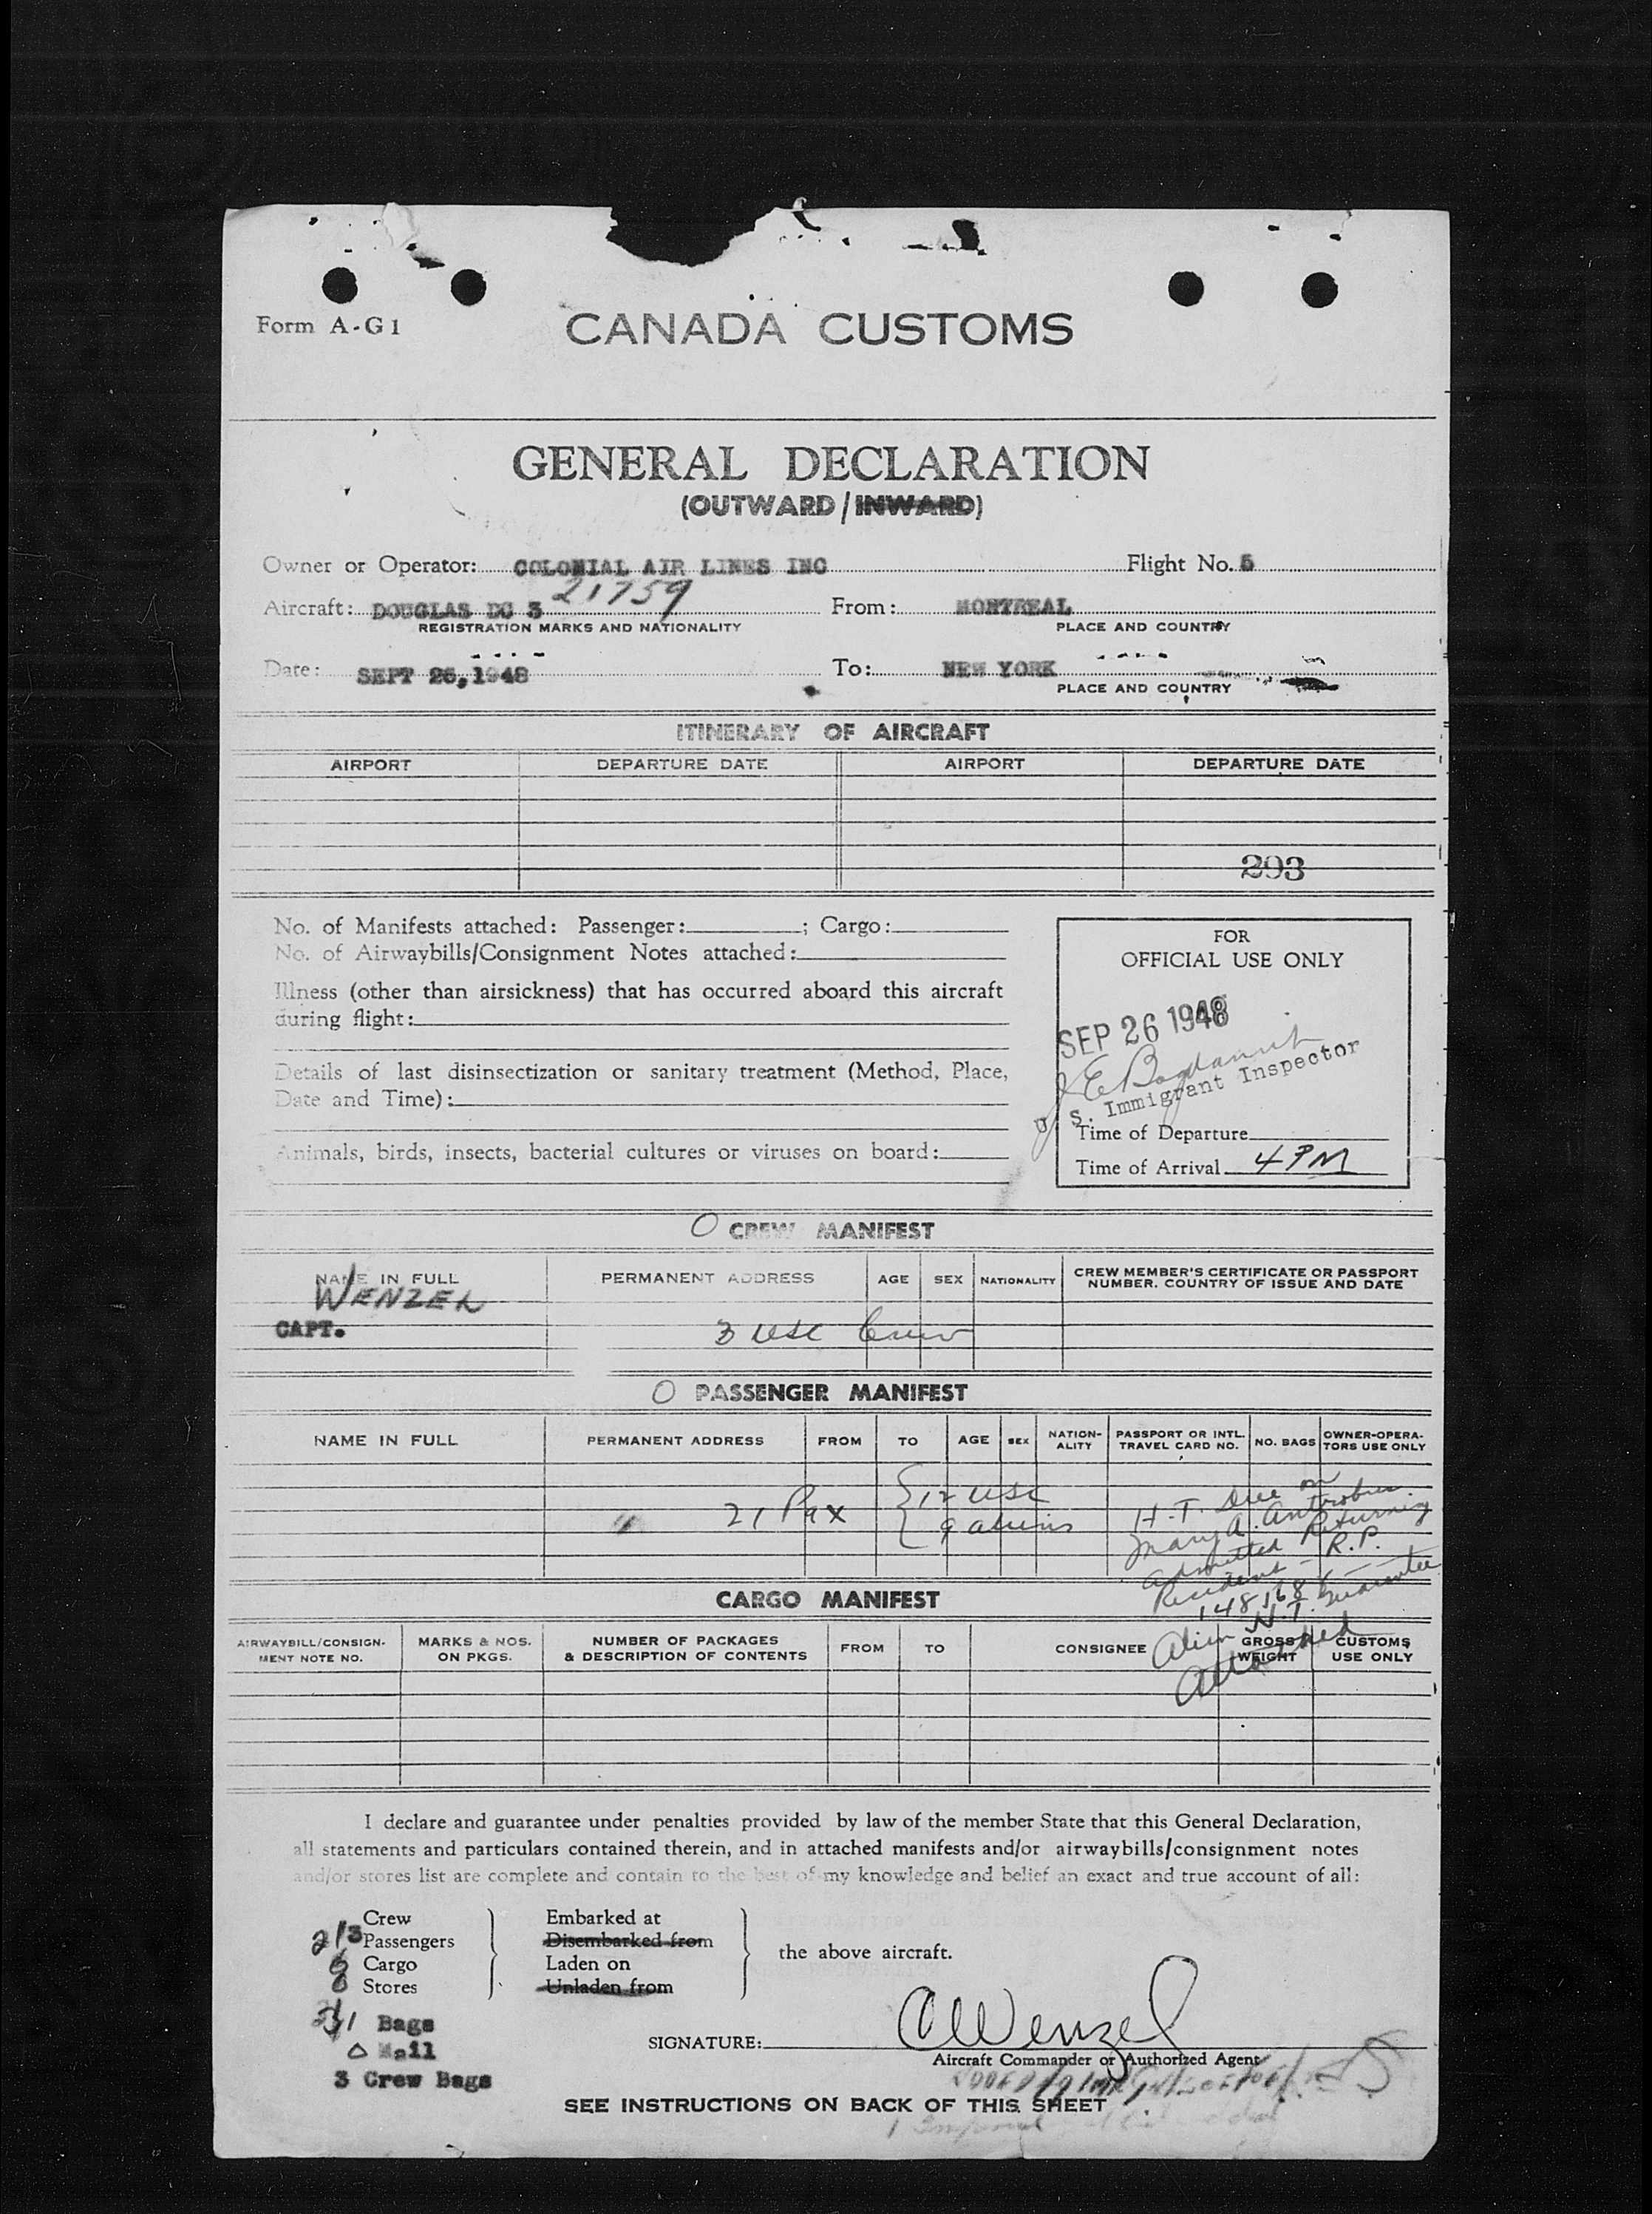 Form A-G1
CANADA CUSTOMS
GENERAL DECLARATION
(OUTWARD/INWARD)
Owner or Operator: COLONIAL AIR LINES INC Flight No. 5
21759
Aircraft: DOUGLAS DC 3 From: MONTREAL
REGISTRATION MARKS AND NATIONALITY PLACE AND COUNTRY
Date: SEPT 26,1948 To: NEW YORK
PLACE AND COUNTRY
ITINERARY OF AIRCRAFT
AIRPORT DEPARTURE DATE AIRPORT DEPARTURE DATE
293
No. of Manifests attached: Passenger: ; Cargo:
No. of Airwaybills/Consignment Notes attached:
Illness (other than airsickness) that has occurred aboard this aircraft
during flight:
Details of last disinsectization or sanitary treatment (Method, Place,
Date and Time):
Animals, birds, insects, bacterial cultures or viruses on board:
FOR
OFFICIAL USE ONLY
SEP 26 1948
U. S. Immigrant Inspector
Time of Departure
Time of Arrival 4 PM
CREW MANIFEST
NAME IN FULL PERMANENT ADDRESS AGE SEX NATIONALITY CREW MEMBER'S CERTIFICATE OR PASSPORT
NUMBER, COUNTRY OF ISSUE AND DATE
WENZEL
CAPT. 3 USC Crew
PASSENGER MANIFEST
NAME IN FULL PERMANENT ADDRESS FROM TO AGE SEX NATION-
ALITY PASSPORT OR INTL.
TRAVEL CARD NO. NO. BAGS OWNER-OPERA-
TORS USE ONLY
21 Pax 12 USC
9 aliens
H.T. Due on
Mary A. Antrobus
Admitted Returning
Resident - R.P.
Alien H.T. Guarantee
Attached
CARGO MANIFEST
AIRWAYBILL/CONSIGN-
MENT NOTE NO. MARKS & NOS.
ON PKGS. NUMBER OF PACKAGES
& DESCRIPTION OF CONTENTS FROM TO CONSIGNEE GROSS
WEIGHT CUSTOMS
USE ONLY
I declare and guarantee under penalties provided by law of the member State that this General Declaration,
all statements and particulars contained therein, and in attached manifests and/or airwaybills/consignment notes
and/or stores list are complete and contain to the best of my knowledge and belief an exact and true account of all:
3 Crew Embarked at
21 Passengers Disembarked from
the above aircraft.
Cargo Laden on
Stores Unladen from
Bags
Mail
3 Crew Bags
SIGNATURE: C Wenzel
Aircraft Commander or Authorized Agent
SEE INSTRUCTIONS ON BACK OF THIS SHEET